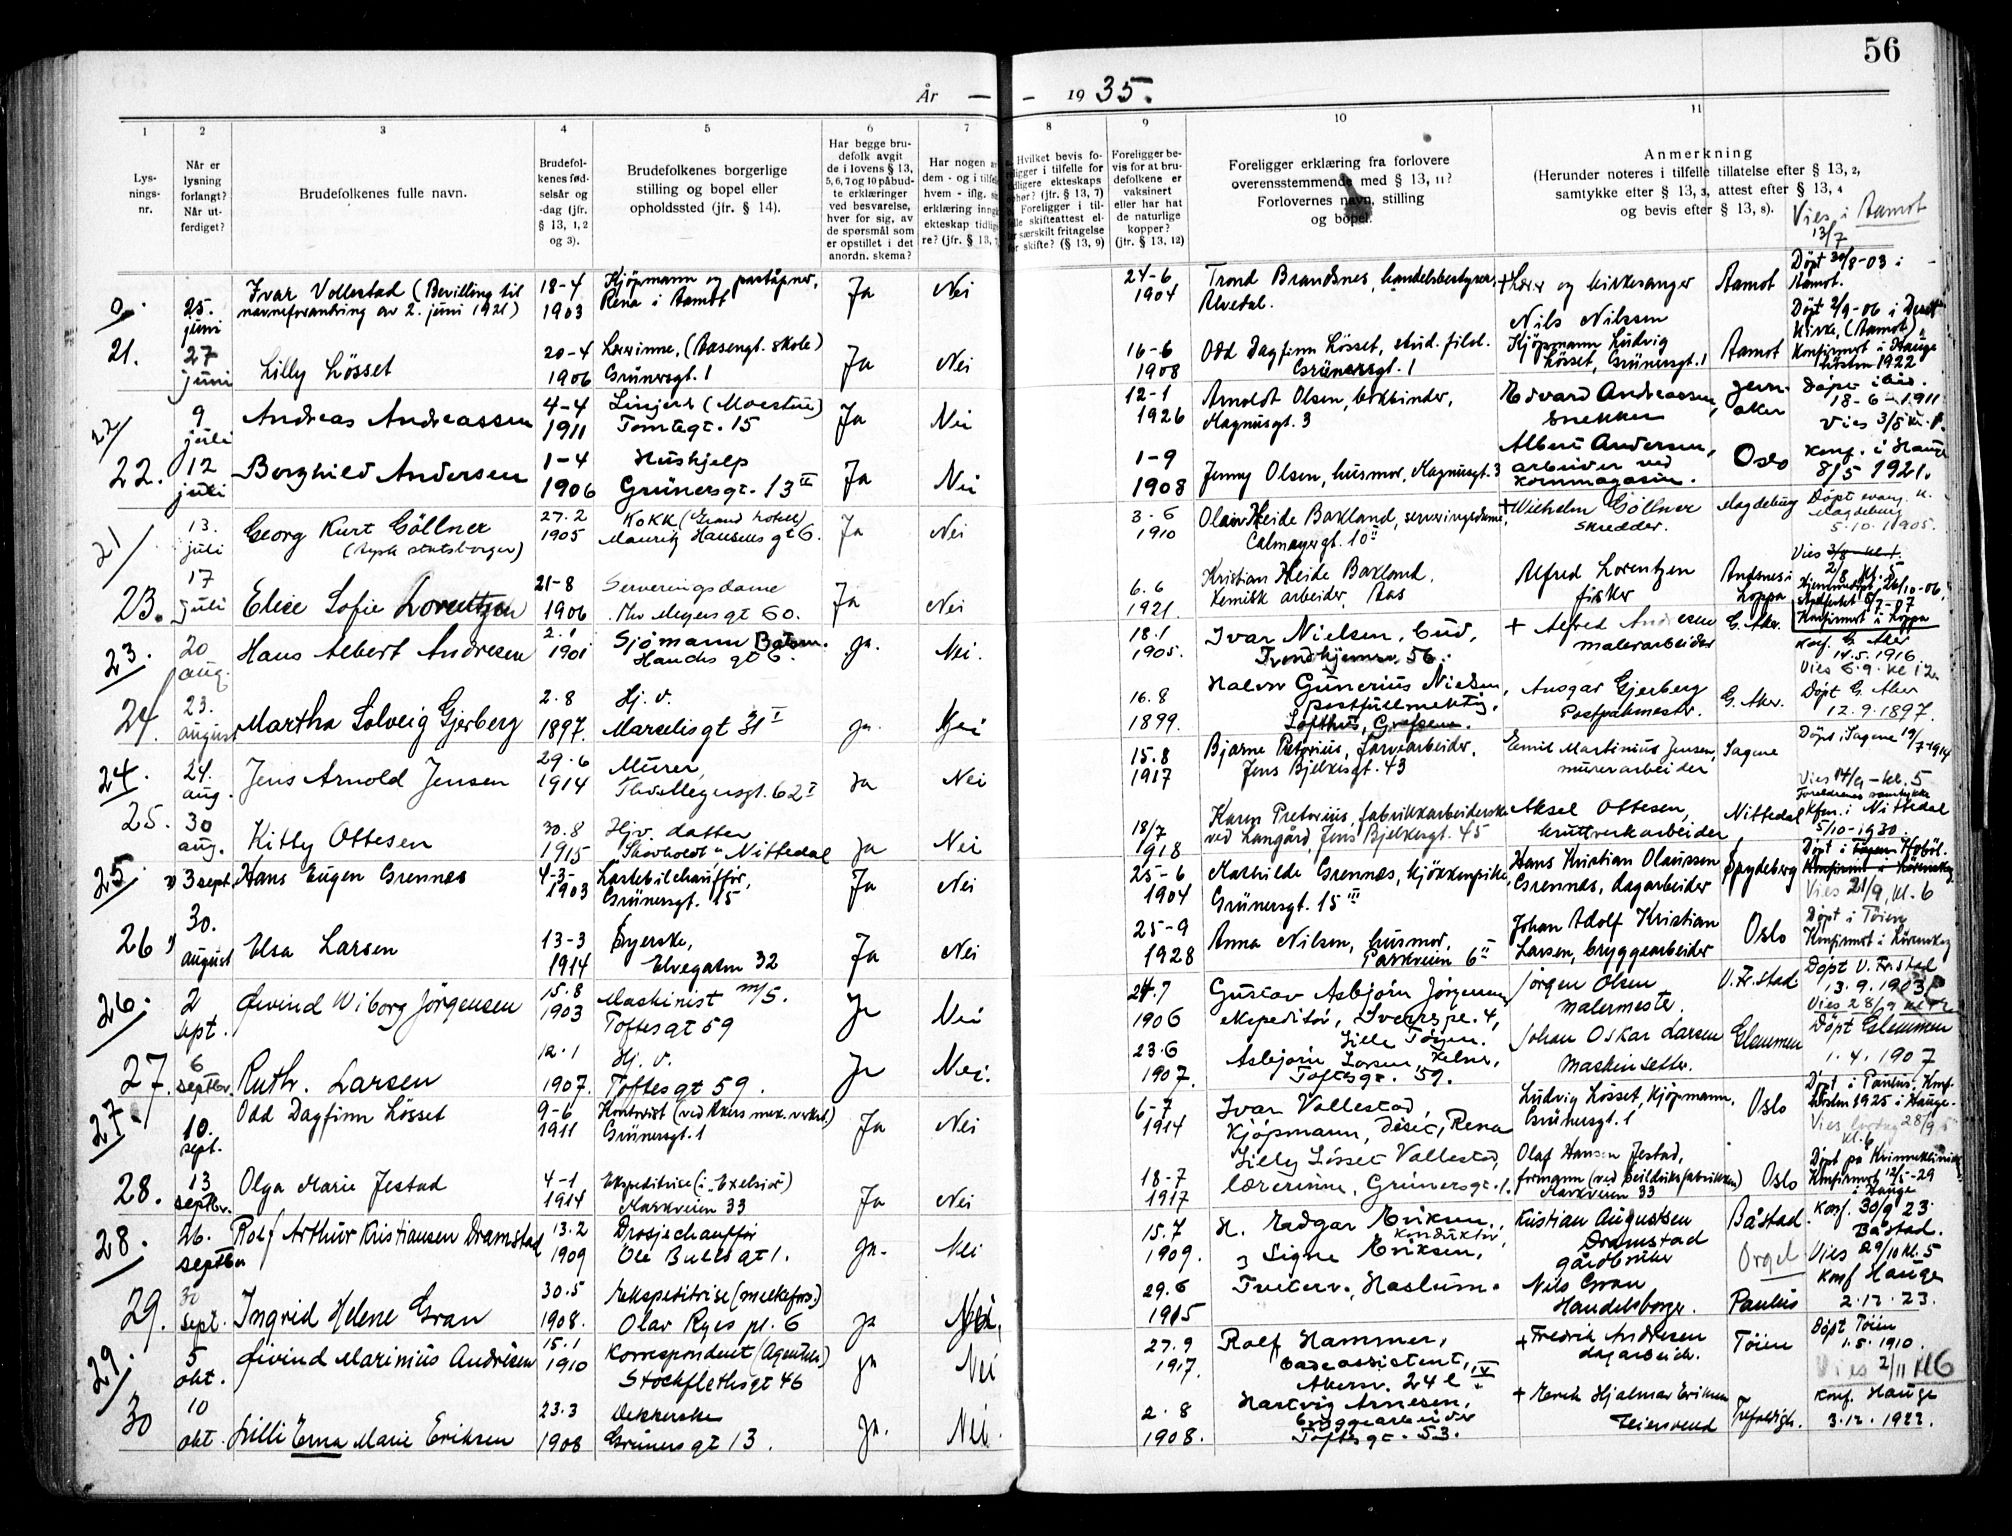 56
År — — 1935.
1 2 3 4 5 6 7 8 9 10 11
Lysningsnr.
Når er lysning forlangt? Når utferdiget?
Brudefolkenes fulle navn.
Brudefolkenes fødselsår og -dag (jfr. § 13, 1, 2 og 3).
Brudefolkenes borgerlige stilling og bopel eller opholdssted (jfr. § 14).
Har begge brudefolk avgit de i lovens § 13, 5, 6, 7 og 10 påbudte erklæringer ved besvarelse, hver for sig, av de spørsmål som er opstillet i det anordn. skema?
Foreligger bevis for at brudefolkene er vaksinert eller har hat de naturlige kopper? (jfr. § 13, 12)
Foreligger erklæring fra forlovere overensstemmende med § 13, 11? Forlovernes navn, stilling og bopel.
Anmerkning
(Herunder noteres i tilfelle tillatelse efter § 13, 2, samtykke efter § 13, 3, attest efter § 13, 4 og bevis efter § 13, 8).
Vies i Aamot 13/7
25. juni Ivar Vollestad (Bevilling til navneforandring av 2. juni 1921) 18-4 1903 Kjöpmann og poståpner, Rena i Aamot Ja Nei 24-6 1904 Trond Brandsnes, handelsbestyrer, Alvedal. + Lærer og kirkesanger Nils Nilssen Aamot Döpt 20/8-03 i Aamot.
21. 27 juni Lilly Lösset 20-4 1906 Lærerinne, (Aasengt. skole) Grünersgt. 1 Ja Nei 16-6 1908 Odd Dagfinn Lösset, stud. filol. Grünersgt. 1 Kjöpmann Ludvig Lösset, Grünersgt. 1 Aamot Döpt 2/9-06 i Deset Kirke, (Aamot) Konfirmert i Hauge hösten 1922
22 9 juli Andreas Andreassen 4-4 1911 Tomtegt. 15 Ja Nei 12-1 1926 Arnoldt Olsen, bokbinder, Magnusgt. 3 Edvard Andreassen, snekker 18-6-1911 Vies 3/8
22. 12 juli Borghild Andersen 1-4 1906 Hushjelp Grünersgt. 13 II Ja Nei 1-9 1908 Jenny Olsen, husmor, Magnusgt. 3 Albert Andersen, arbeider ved kornmagasin. Oslo Konf. i Hauge 8/5 1921.
21 13. juli Georg Kurt Göllner (tysk statsborger) 27.2 1905 Kokk (Grand hotell) Mauritz Hansens gt 6. Ja Nei 3.6 1910 Olav Heide Bakland, serveringsdame, Calmeyergt. 10 + Wilhelm Göllner skredder. Magdeburg Döpt evang. k. Magdeburg 5.10.1905.
23. 17 juli Elise Sofie Lorentzen 21-8 1906 Serveringsdame Thv Meyers gt 60. Ja Nei 6.6 1921. Kristian Heide Bakland, kemisk arbeider, Aas Alfred Lorentzen fisker Andsnes i Loppa Vies 3/8 kl. 1. 2/8 kl. 5 Hjemmedöpt 26/10-06, Konfirmert i Loppa
23. 20 aug. Hans Albert Andresen 2.1 1901 Sjömann Hauchs gt 6. ja. Nei. 18.1 1905. Ivar Nielsen, bud, Trondhjemsv. 56. + Alfred Andresen malerarbeider G. Aker. Konf. G. Aker 14.5.1916 Vies 6.9. kl 12
24. 23. august Martha Solveig Gjerberg 2.8 1897. Hj. v. Marselis gt 31 I ja. Nei 16.8 1899. Halvor Gunerius Nielsen, postfullmektig, Lofthus, Grefsen. Ansgar Gjerberg Postpakmester. G. Aker. Döpt G. Aker 12.9.1897.
24. 24. aug. Jens Arnold Jensen 29.6 1914 Murer, Thv. Meyersgt. 62 I Ja Nei 15.8 1917 Bjarne Pretorius, farvearbeider, Jens Bjelkesgt. 43 Emil Martinius Jensen, murerarbeider Sagene Döpt i Sagene 19/7-1914
25. 30 aug. Kitty Ottesen 30.8 1915 Hjv. datter "Skovholdt" Nittedal Ja Nei 18/7 1918 Karen Pretorius, fabrikkarbeiderske ved Langård, Jens Bjelkesgt. 45 Aksel Ottesen, kruttverkarbeider Nittedal Vies 14/9 - kl. 5 Foreldrenes samtykke Kfm. i Nittedal 5/10-1930.
25 3 sept. Hans Eugen Grennes 4-3- 1903 Lastebilchauffør, Grünersgt. 15 Ja Nei 25-6 1904 Mathilde Grennes, kjökkenpike, Grünersgt. 15 III Hans Kristian Olaussen Grennes, dagarbeider Spydeberg Döpt i Hobøl. Vies 21/9, kl. 6
26 30. august Elsa Larsen 13-3 1914 Syerske, Elvegaten 32 Ja Nei 25-9 1928 Anna Nilsen, husmor, Parkveien 6 II Johan Adolf Kristian Larsen, bryggearbeider Oslo Döpt i Tøien Konfirmert i Lörenskog
26. 2 sept. Øivind Wiborg Jörgensen 15.8 1903 Maskinist m/s. Toftes gt 59 Ja Nei 24.7 1906 Gustav Asbjørn Jørgensen, ekspeditør, Sverrespl. 4, Lille Tøyen. Jørgen Olsen, malermester V. Fr.stad Döpt V. Fr.stad 13.9.1903 Vies 28/9
27. 6 septbr. Ruth. Larsen 12.1 1907. Hj. v. Toftes gt 59. Ja Nei. 23.6 1907. Asbjørn Larsen, kelner, Toftesgt. 59. Johan Oskar Larsen Maskinsetter. Glemmen Döpt Glemmen 1.4.1907
27. 10. sept. Odd Dagfinn Lösset 9-6 1911 Kontorist (ved Akers mek. verksted.) Grünersgt. 1 Ja Nei 6-7 1914 Ivar Vollestad, Kjöpmann, Deset, Rena Ludvig Lösset, Kjöpmann, Grünersgt. 1 Oslo Döpt i Paulus. Konf. hösten 1925 i Hauge. Vies lørdag 28/9 kl. 6
28. 13 septbr. Olga Marie Jestad 4-1 1914 Ekspeditrise (i "Exelsior") Markveien 33 Ja Nei 18-7 1917 Lilly Lösset Vollestad, lærerinne, Grünersgt. 1. Olaf Hansen Jestad, formann (ved Seilduksfabrikken) Markveien 33 Oslo Döpt på Kvinneklinikken Konfirmert 12/5-29 i Hauge
28. 26. septbr Rolf Arthur Kristiansen Dramstad 13.2 1909 Drosjechauffør Ole Bulls gt 1. ja. Nei 15.7 1909. H. Edgar Eriksen, konduktør, Kristian Augustsen Dramstad gårdbruker Båstad. Konf. 30/9 23. Båstad.
29. 30 sept. Ingrid Helene Gran 30.5 1908. Ekspeditrise (melkefors.) Olav Ryes pl. 6 ja Nei. 29.6 1915 Signe Eriksen, Tveterv., Haslum. Nils Gran Handelsborger. Orgel Paulus Vies 29/10 kl. 5 Konf Hauge 2.12.23.
29. 5 okt. Øivind Marinius Andresen 15.1 1910 Korrespondent (Agentur) Stockflethsgt 46 ja Nei 27.9 1917. Rolf Hammer, badeassistent, Akersv. 24 l IV + Fredrik Andresen dagarbeid. Töien Döpt Töien 1.5.1910. Vies 2/11 kl 6
30 10 okt. Lilli Erna Marie Eriksen 23.3 1908 Dekkerske Grüners gt 13. ja. Nei. 2.8 1908. Hartvig Arnesen, bryggearbeider Toftesgt. 53. + Hjalmar Eriksen feiersvend Trefoldigh. Konf. Hauge 3.12.1922.